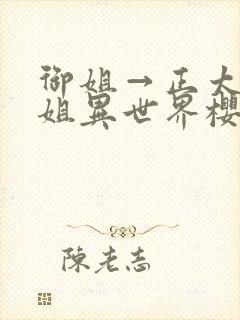 御姐→正太
姐異世界櫻
陳老志